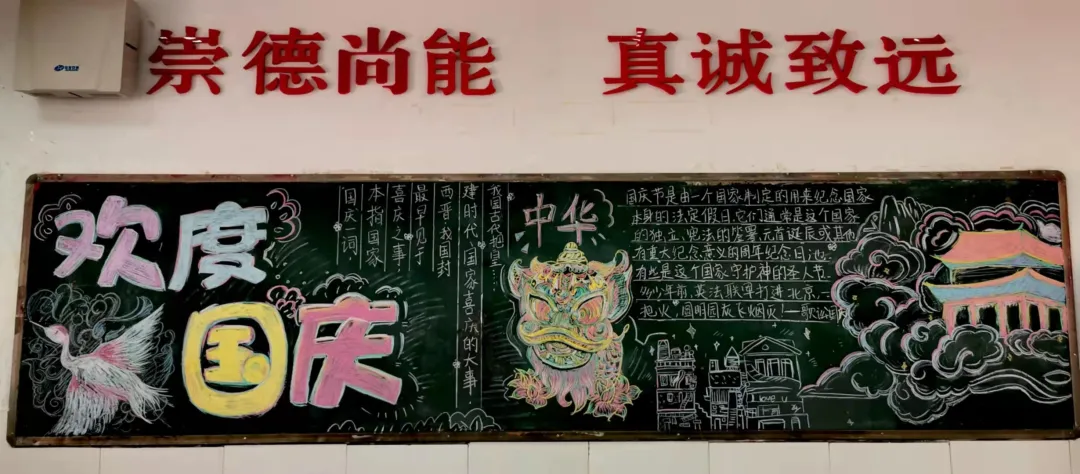 崇德尚能 真诚致远
欢度
国庆
国庆一词
本指国家
喜庆之事
最早见于
西晋我国封
建时代、国家喜庆的大事
我国古代把皇……
中华
国庆节是由一个国家制定的用来纪念国家
本身的法定假日,它们通常是这个国家
的独立、宪法的签署、元首诞辰或其他
有重大纪念意义的周年纪念日;也
有些是这个国家守护神的圣人节.
年前,英法联军打进北京,一
火,圆明园灰飞烟灭!
I love u